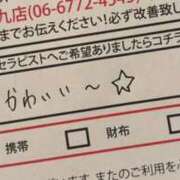 九店(06-6772-4545)
までお伝えください!必ず改善致し
セラピストへご希望ありましたらコチラ
かわいい〜☆
携帯
財布
ます。またのご利用を